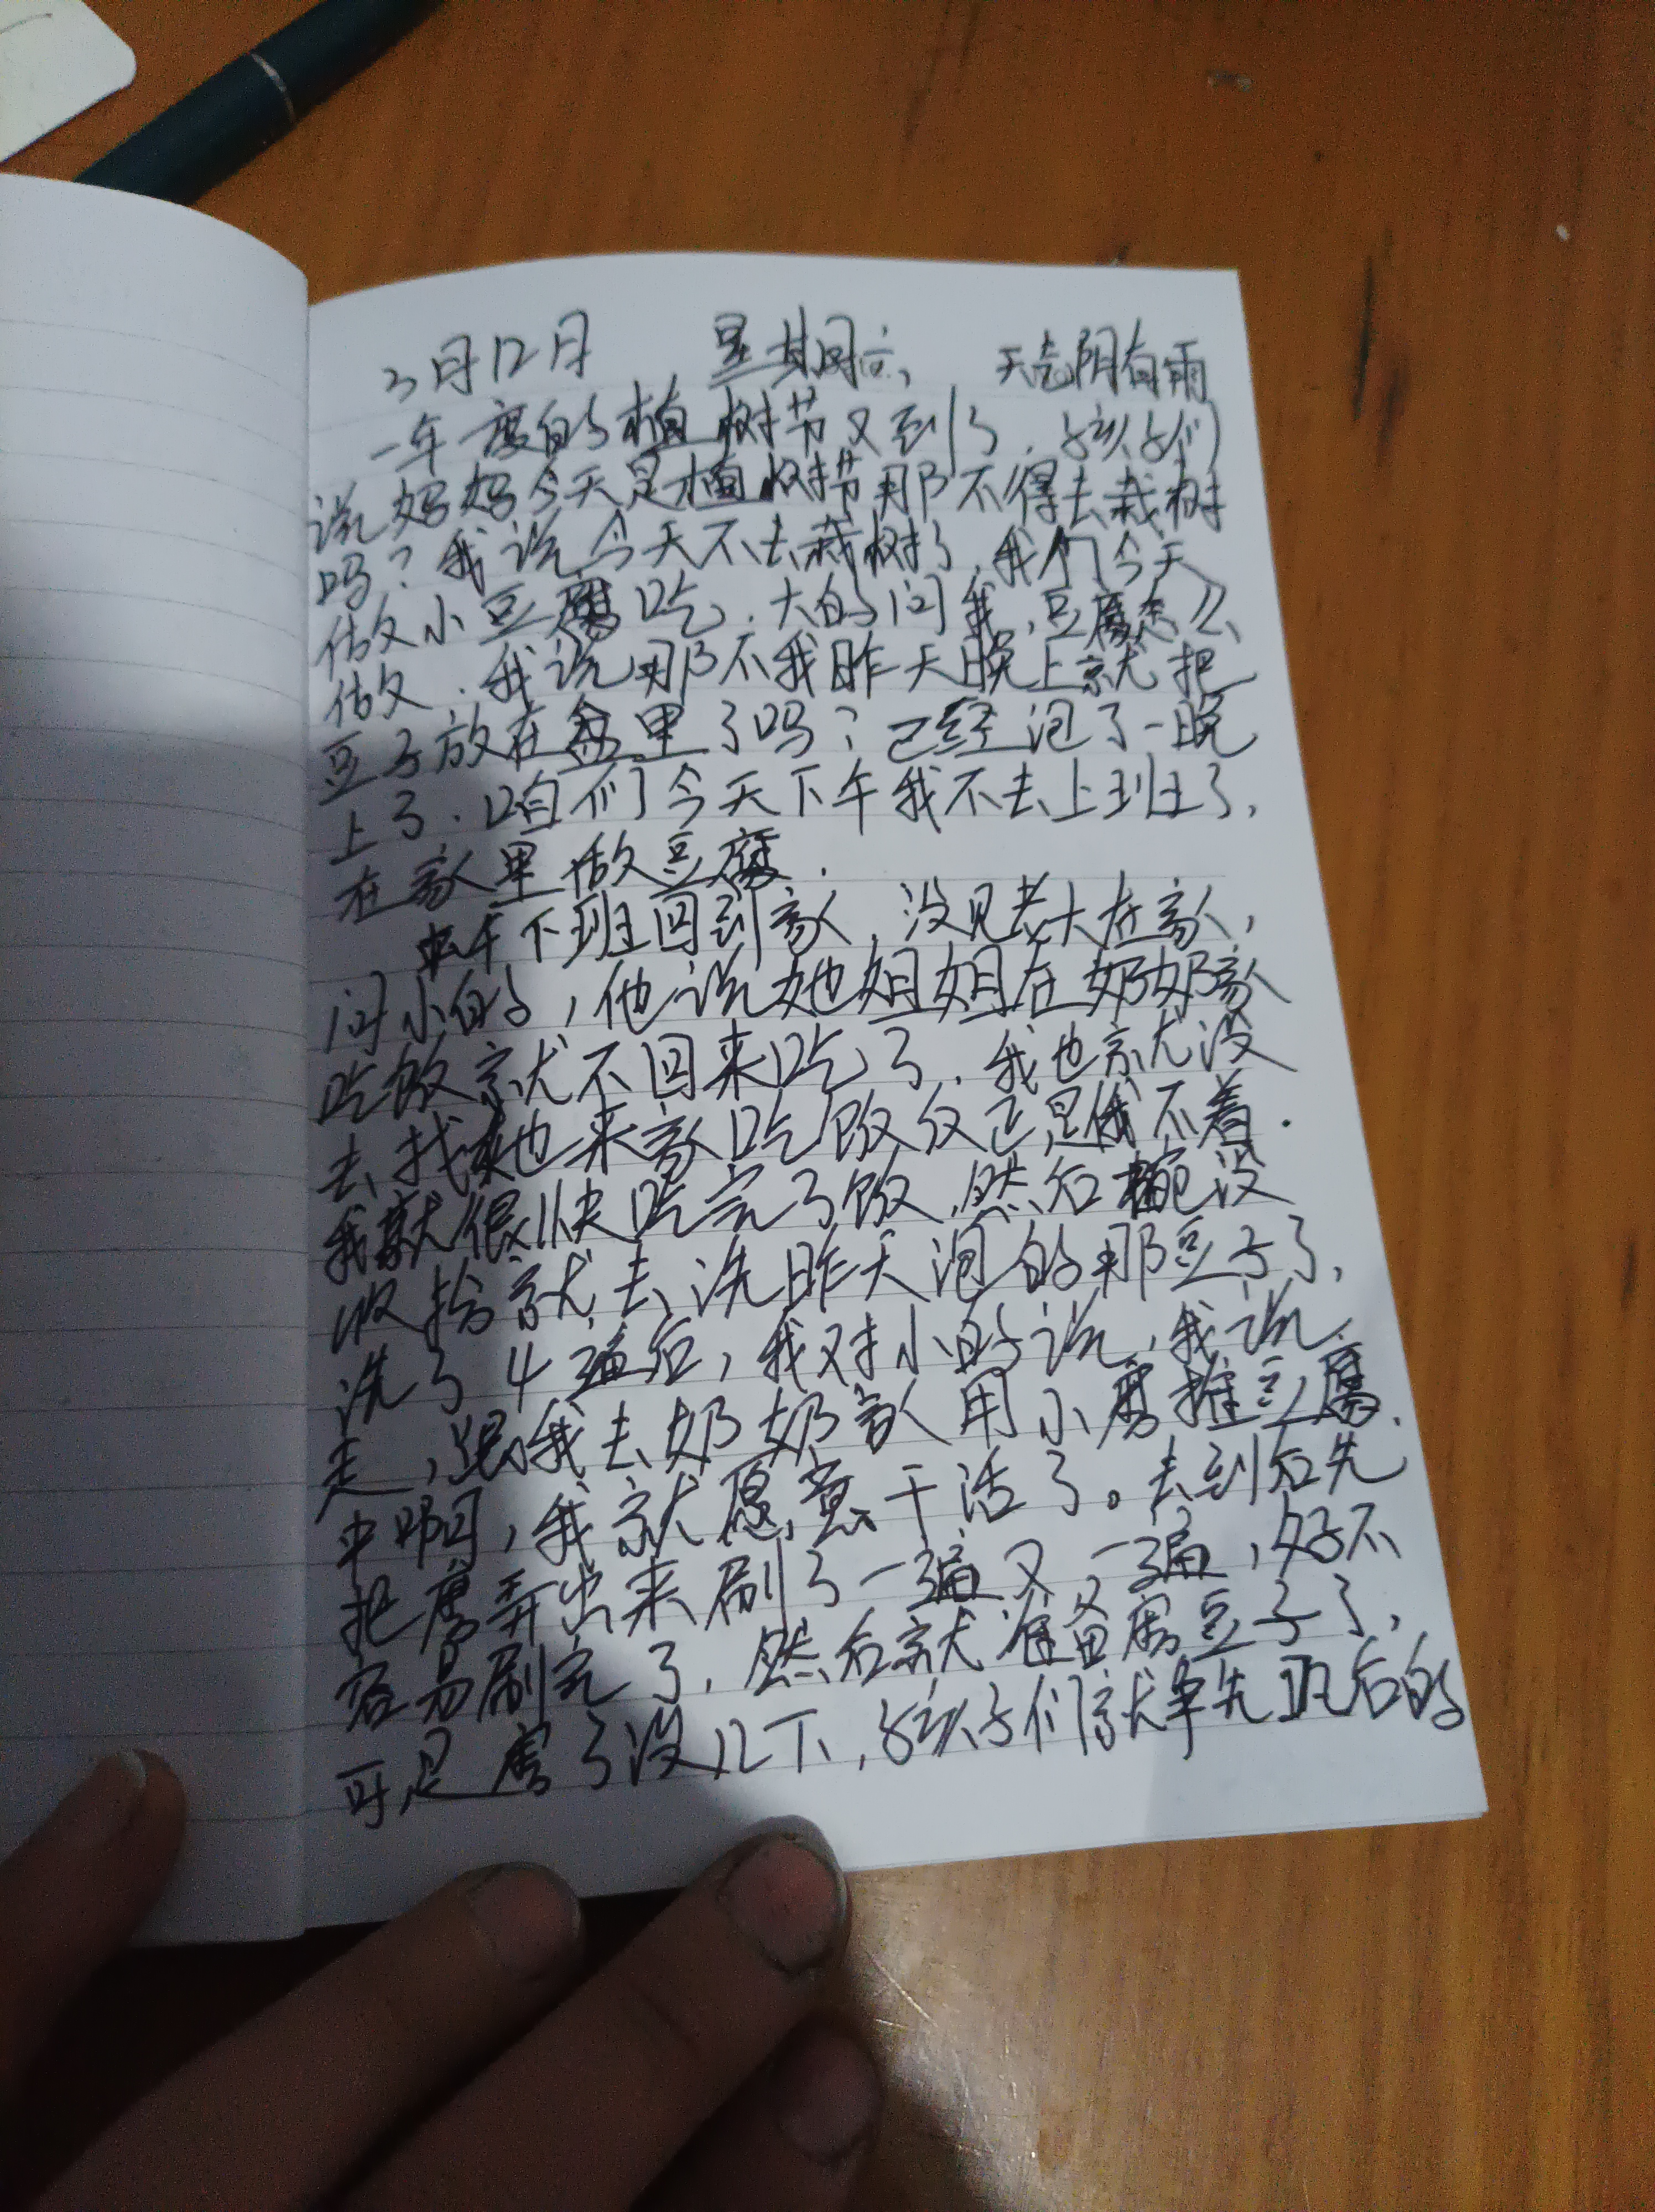 3月12日 星期六 天气阴有雨
一年一度的植树节又到了.孩子们
说妈妈今天是植树节那不得去栽树
吗?我说今天不去栽树了,我们今天
做小豆腐吃.大的问我,豆腐怎么
做.我说那不我昨天晚上就把
豆子放在盆里了吗?已经泡了一晚
上了.咱们今天下午我不去上班了,
在家里做豆腐.
中午下班回到家,没见老大在家,
问小的,他说她姐姐在奶奶家
吃饭就不回来吃了.我也就没
去找她来家吃饭反正是饿不着.
我就很快吃完了饭,然后碗没
收拾就去洗昨天泡的那豆子了,
洗了4遍后,我对小的说,我说
走,跟我去奶奶家用小磨推豆腐.
中啊,我就愿意干活了。去到后先
把磨弄出来刷了一遍又一遍,好不
容易刷完了,然后就准备磨豆子了,
可是磨了没几下,孩子们就争先恐后的